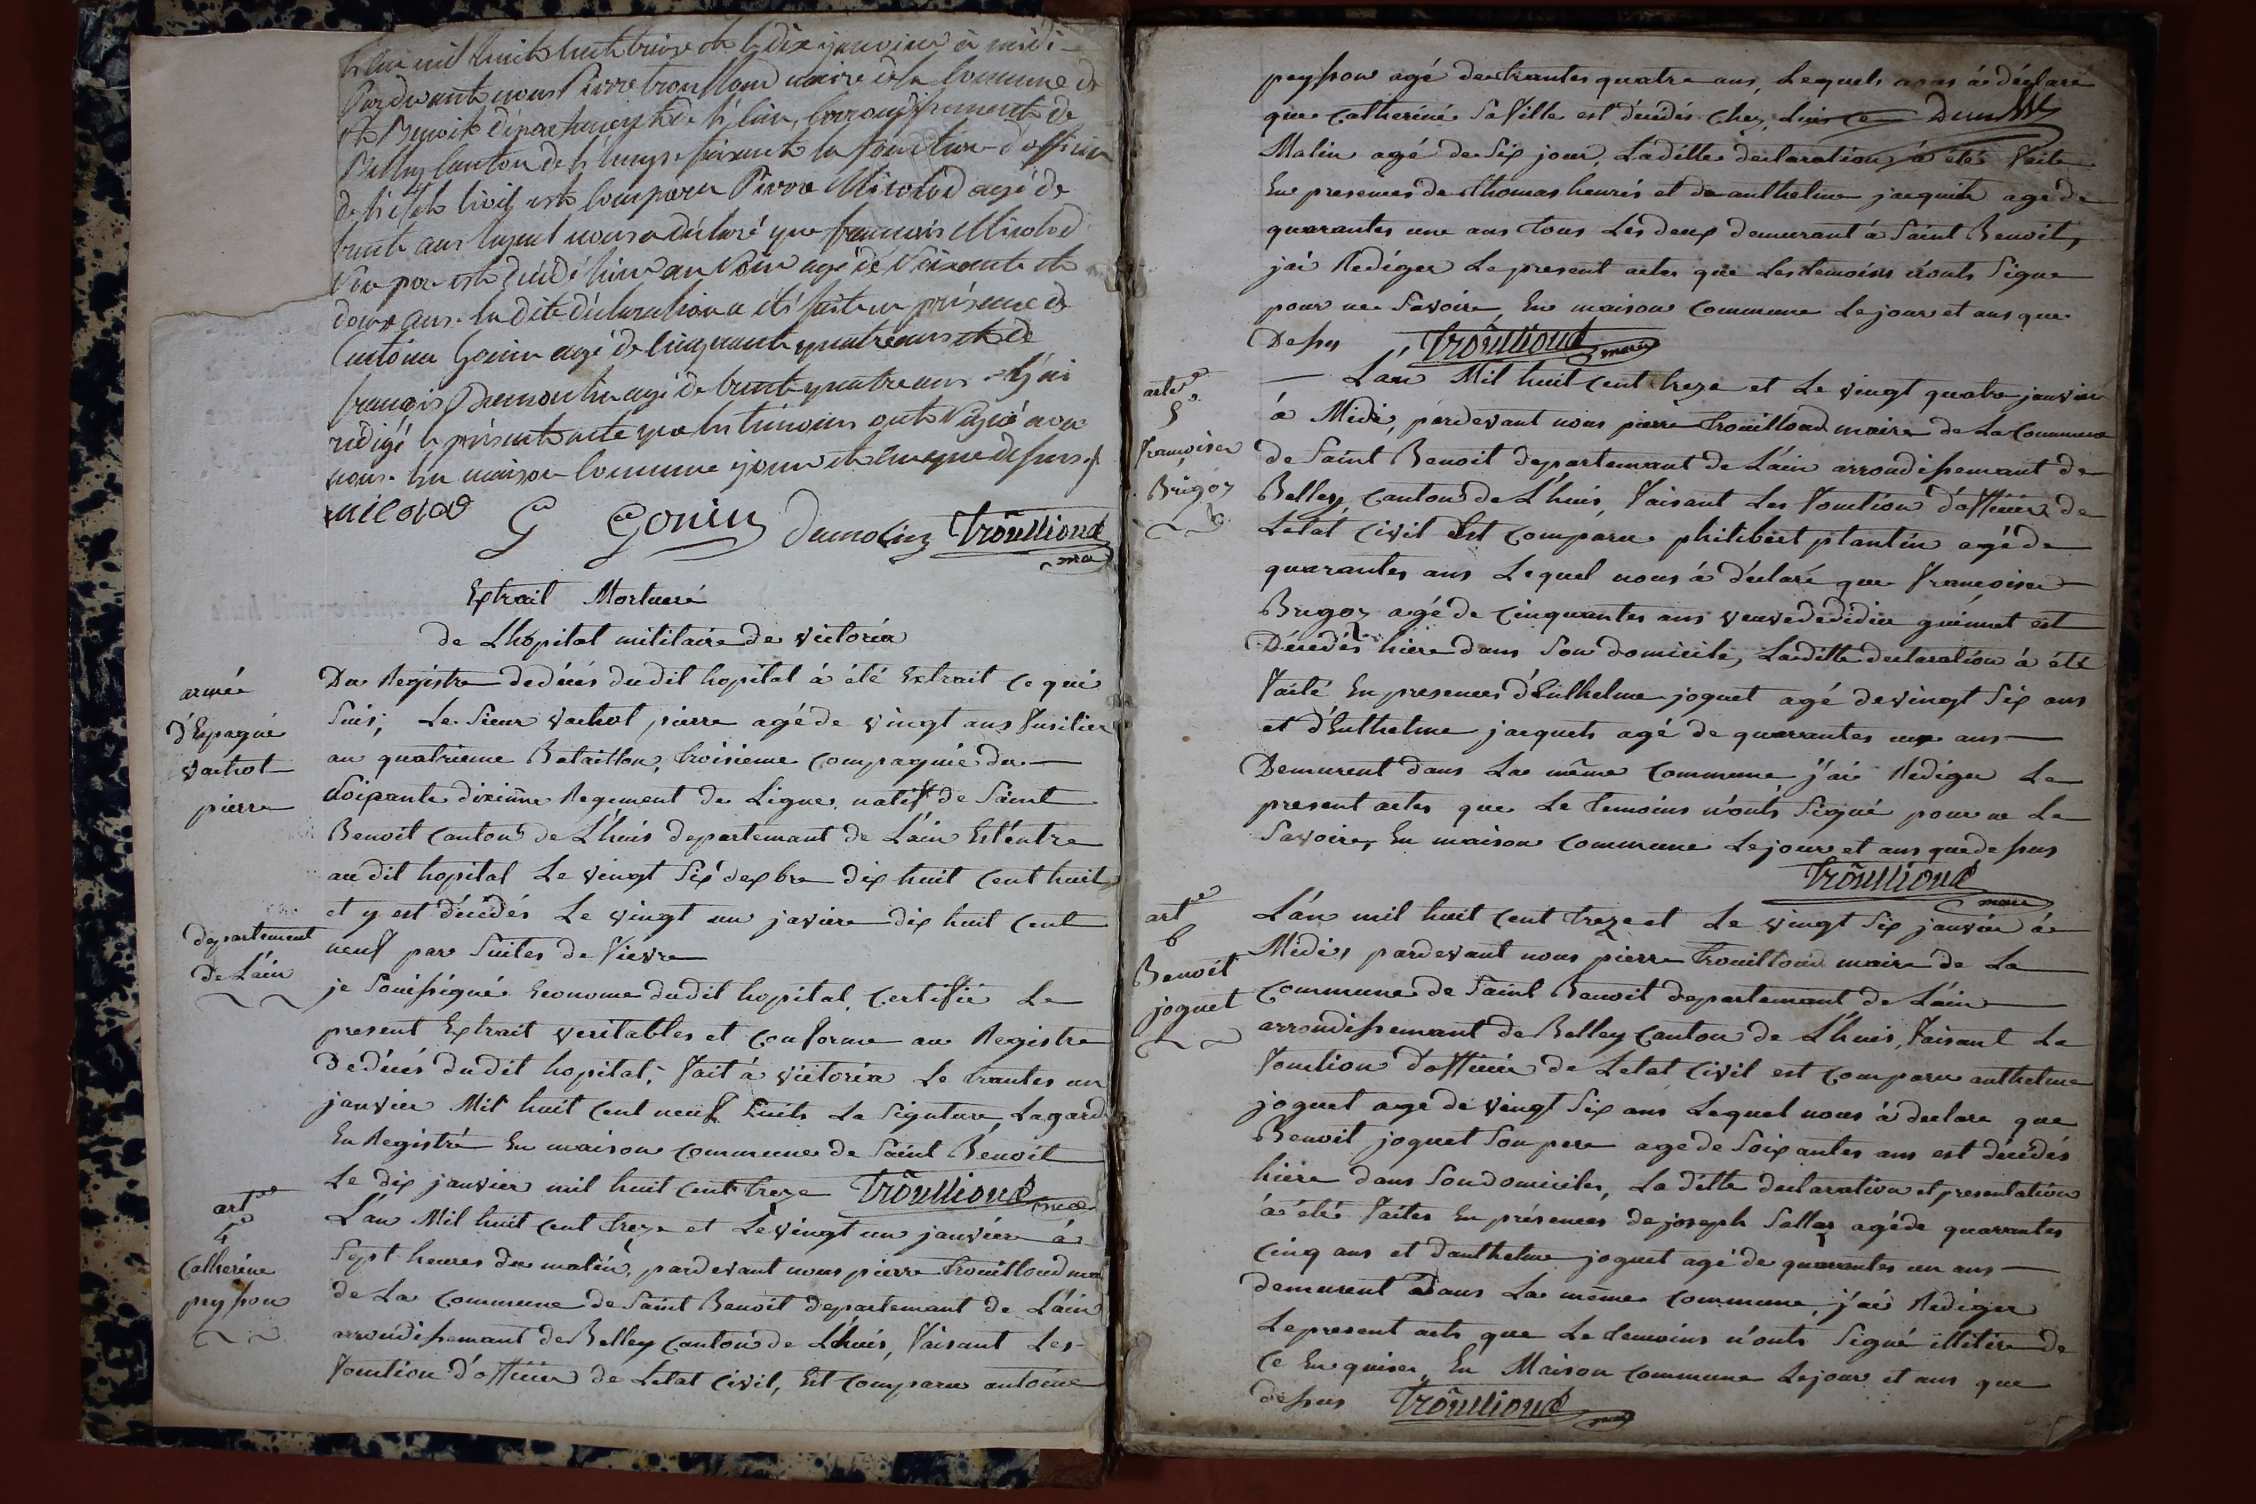 L'an mil huit cent treize et le dix janvier à midi
Pardevant nous Pierre trouilloud maire de la Commune de
St Benoit département de l'ain, arrondissement de
Belley Canton de l'huys faisant la fonction d'officier
de l'état Civil est Comparu Pierre Micolod agé de
trente ans lequel nous a déclaré que francois Micolod
son pere est décédé hier au soir agé de soixante et
douze ans. la dite déclaration a été faite en présence de
Antoine Gonin agé de cinquante quatre ans et de
françois Dumoulin agé de trente quatre ans. et j'ai
rédigé le présent acte que les témoins ont signé avec
nous. En maison Commune jour et an que dessus.
micolod G Gonin Dumolin Trouilloud
maire
Extrait Mortuere
de Lhôpital militaire de victoria
armée
d'Espagne
vachot
pierre
departement
De L'ain
Du Registre dedécés dudit hopital à été Extrait ce qui
Suis; Le Sieur vachot pierre agé de vingt ans fusilier
au quatrieme Bataillon, troisieme Compagnie du
Soixante dixième Regiment de Ligne, natif de Saint
Benoit Canton de L'huis departemant de L'ain Est entre
au dit hopital Le vingt Six dexbre dix huit Cent huit
et y est décédés Le vingt un javiere dix huit Cent
neuf par Suites de Fievre
je Souissigné Econome dudit hopital Certifié Le
present Extrait veritables et Conforme au Registre
Dedécés dudit hopital, Fait à victoria Le trantes un
janvier Mil huit Cent neuf Suits La Signature, Lagard
En Registré En maison Commune de Saint Benoit
Le dix janvier mil huit Cent treze Trouilloud
maire
art
4
Catherine
peysson
L'an Mil huit Cent treze et Le vingt un janvière à
Sept heures du matin, pardevant nous pierre trouilloud mai
de La Commune de Saint Benoit departemant de L'ain
arroudissemant de Belley Canton de L'huis, Faisant Les
Fonction d'officier de Letat Civil, Est Comparu antoine
peysson agé detrantes quatre ans, Lequels nous à déclaré
que Catherine Sa Fille est décédés chez Lui ce
Matin agé de Six jour, Laditte declaration à été Faite
En presences de Thomas henrés et de anthelme jacquet age de
quarantes une ans tous Les deux demurant à Saint Benoit,
jai Rediger Le present actes que Les temoins n'onts Signe
pour ne Savoire, En maison Commune Le jour et ans que
Dessus Trouilloud
maire
arte
5
Françoise
Brigoz
L'an Mil huit Cent treze et Le vingt quatre janvier
à Midi, pardevant nous pierre trouilloud maire de La Commune
de Saint Benoit departemant de L'ain arroudissemant de
Belley, Canton de L'huis, Faisant Les Fonction d'officier de
Letat Civil Est Comparu philibert plantin agé de
quarantes ans Lequel nous à déclaré que Françoise
Brigoz agé de Cinquantes ans veuve dedidier guinnet est
Décédés hiere dans Son domicile, Laditte declaration à été
Faite En presences d'Enthelme joguet agé de vingt Six ans
et d'Enthelme jacquets agé de quarantes un ans
Demurent dans La même Commune j'ai Rediger Le
present actes que Le Temoins n'onts Signé pour ne Le
Savoire, En maison Commune Le jour et ans quede ssus
Trouilloud
maire
art
6
Benoit
joguet
L'an mil huit Cent treze et Le vingt Six janvier à
Midi, pardevant nous pierre trouilloud maire de La
Commune de Saint Benoit departemant de L'ain
arroudissemant de Belley Canton de L'huis, Faisant La
Fonction d'officier de Letat Civil est Comparu anthelme
joguet age de vingt Six ans Lequel nous à declare que
Benoit joguet Son pere age de Soixantes ans est décédés
hiere dans Son domiciles, La ditte declaration et presentation
à été Faites En présences de joseph Sallas agé de quarantes
Cinq ans et danthelme joguet agé de quarantes un ans
demurent Dans La même Commune, j'ai Rediger
Le present acts que Le temoins n'onts Signé illitire de
Ce Enquiser, En Maison Commune Le jour et ans que
dessus Trouilloud
maire